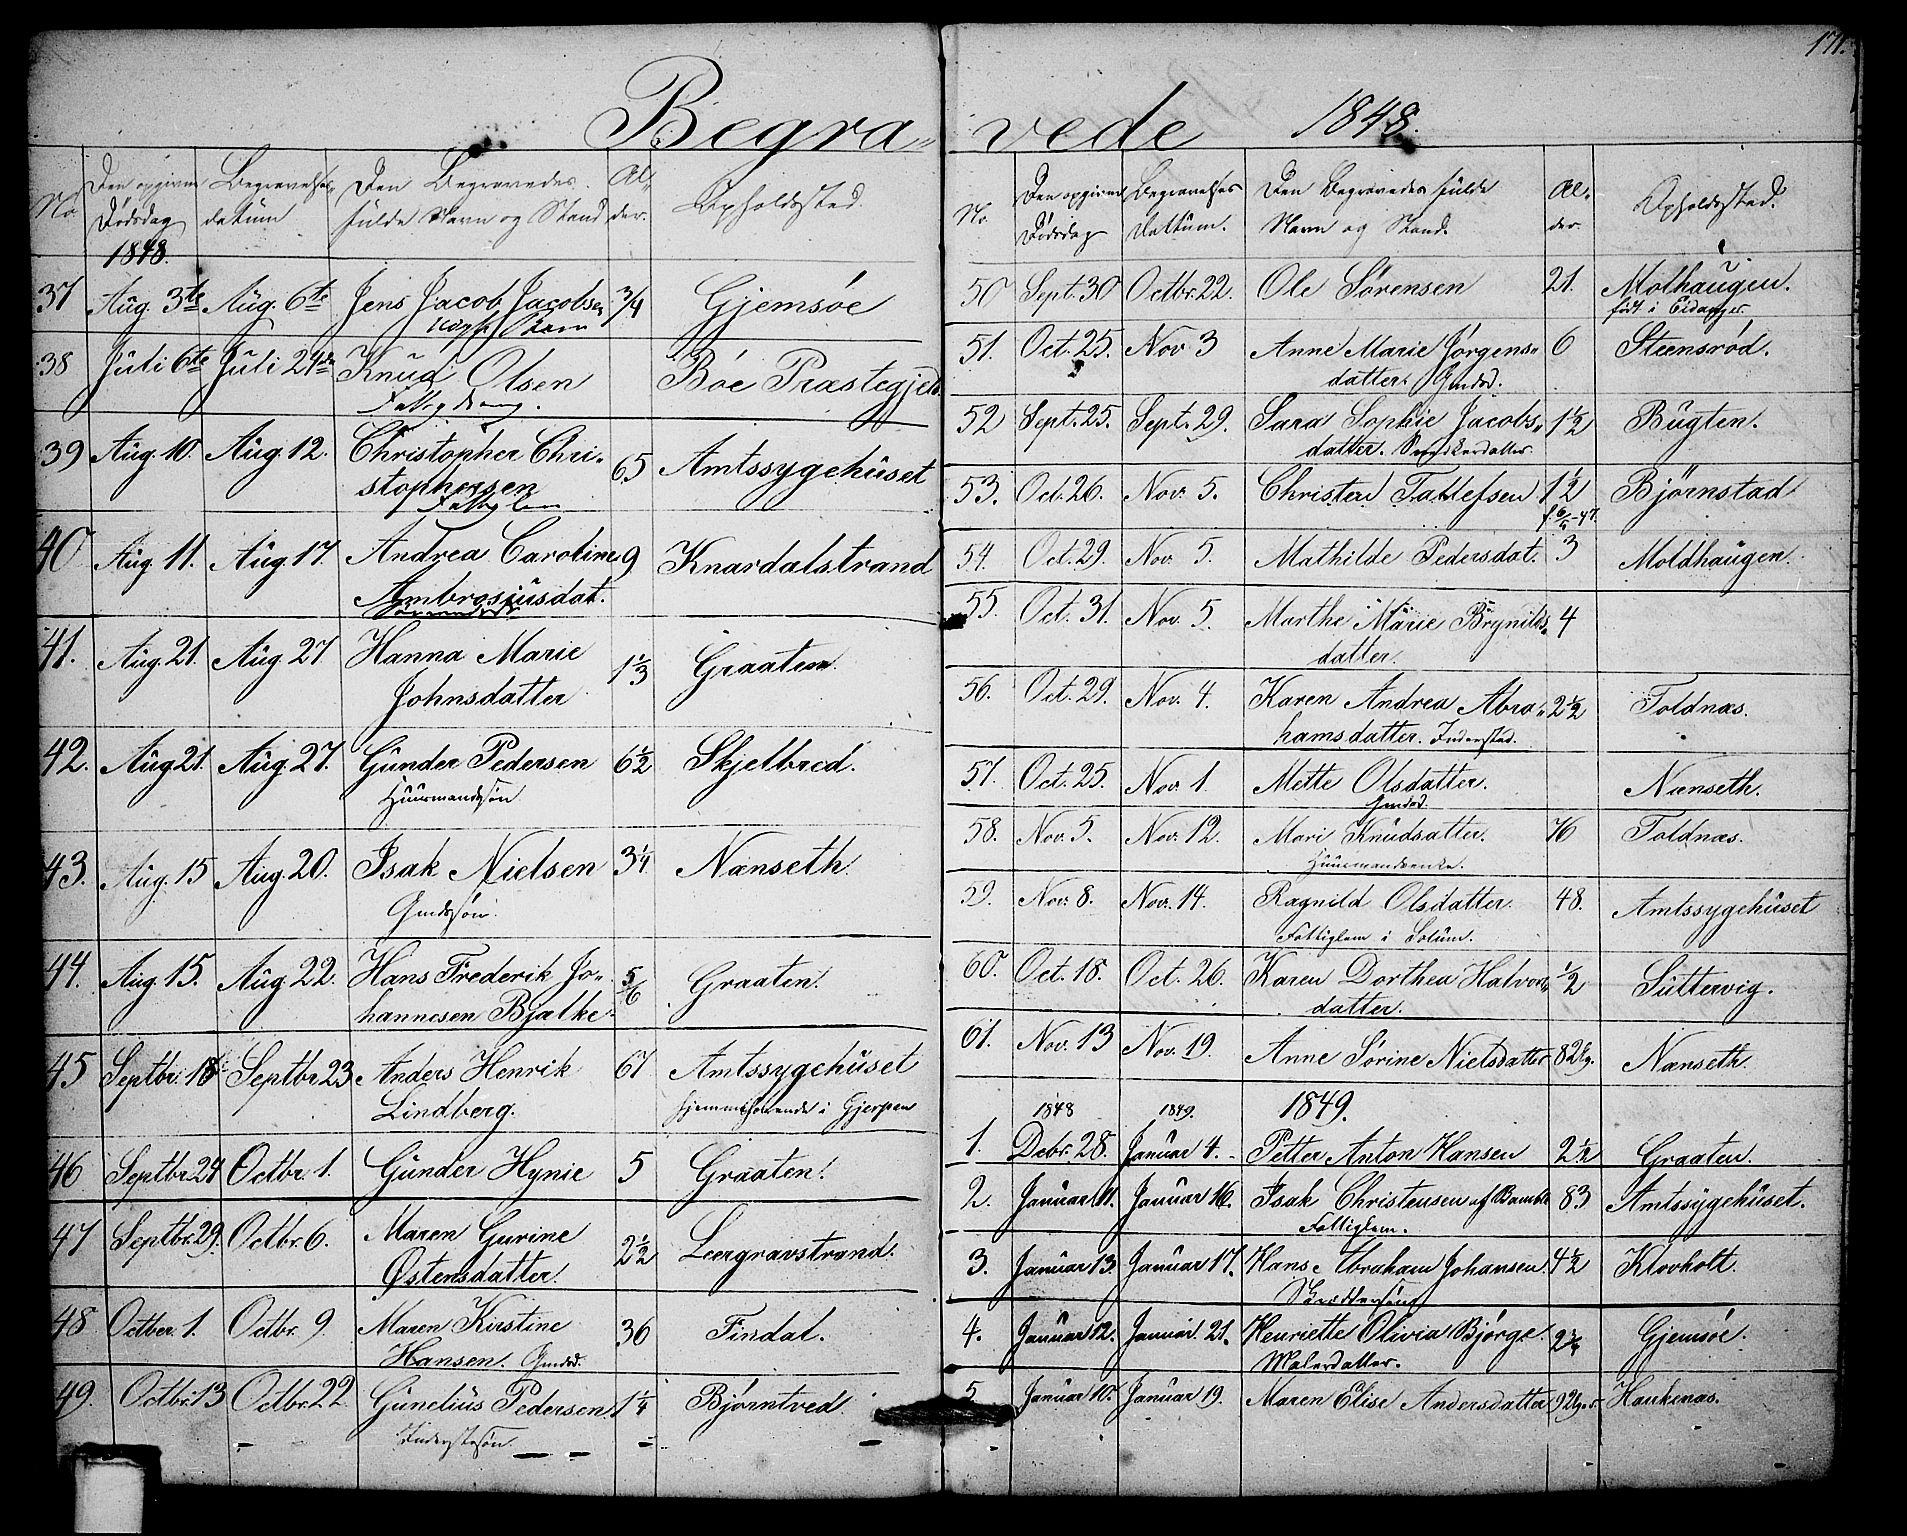 171.
Begra-
vede 1848.
No Den opgivne Dødsdag Begravelses datum Den Begravedes fulde Navn og Stand Al- der. Opholdssted.
1848.
37 Aug. 3te Aug. 6te Jens Jacob Jacobsen 3/4 Gjemsøe
38 Juli 6te Juli 24de Knud Olsen Bøe Præstegjeld
39 Aug. 10. Aug 12. Christopher Chri-
stophersen 65 Amtssygehuset
Fattiglem
40 Aug. 11. Aug. 17. Andrea Caroline 9 Knardalstrand
Ambrosiusdat.
41. Aug. 21. Aug 27. Hanna Marie 1 1/3 Graaten.
Johnsdatter
42. Aug 21. Aug. 27. Gunder Pedersen 6 1/2 Skjelbred.
Huusmandssøn
43. Aug. 15 Aug. 20. Isak Nielsen 3 1/4 Nænseth.
Gmdssøn
44. Aug. 15. Aug. 22. Hans Frederik Jo- 5/6 Graaten.
hannesen Bjelke
45 Septbr. 18 Septbr 23 Anders Henrik 67 Amtssygehuset
Lindberg. hjemmehørende i Gjerpen
46 Septbr. 24 Octbr. 1. Gunder Hynie 5 Graaten.
47 Septbr. 29. Octbr. 6. Maren Gurine 2 1/2 Leergravstrand.
Østensdatter.
48 Octber. 1. Octbr. 9. Maren Kirstine 36 Findal.
Hansen. Gmdsd.
49. Octbr. 13 Octbr. 22 Gunelius Pedersen 1 1/4 Bjørntved
Inderstsøn
No. Den opgivne Dødsdag Begravelses Dattum. Den Begravedes fulde Navn og Stand. Al- der. Opholdssted.
50 Sept. 30 Octbr. 22. Ole Sørensen 21. Molhaugen.
født i Eidanger.
51. Oct. 25. Nov 3 Anne Marie Jørgens- 6 Steensrød.
datter. Gmdsd.
52 Sept. 25. Sept. 29. Sara Sophie Jacobs- 1 1/2 Bugten.
datter. Snedkerdatter.
53. Oct. 26. Nov. 5. Christen Tallefsen 1 1/2 Bjørnstad
54. Oct. 29. Nov. 5. Mathilde Pedersdat. 3 Moldhaugen.
55. Oct. 31. Nov. 5. Marthe Marie Brynilds- 4
datter.
56. Oct. 29. Nov. 4. Karen Andrea Abra- 2 1/2 Toldnæs.
hamsdatter. Inderstd.
57. Oct. 25. Nov. 1. Mette Olsdatter. Nænseth.
Gmdsd.
58. Nov. 5. Nov. 12. Mari Knudsatter. 76 Toldnæs.
Huusmandsenke.
59. Nov. 8. Nov. 14. Ragnild Olsdatter. 48. Amtssygehuset
Fattiglem i Solum.
60. Oct. 18. Oct. 26. Karen Dorthea Halvors- 1/2 Suttervig.
datter.
61. Nov. 13 Nov. 19. Anne Sørine Nielsdatter 82 Nænseth.
1848 1849. 1849.
1. Debr. 28. Januar 4. Petter Anton Hansen 2 1/2 Graaten.
2. Januar 11. Januar 16. Isak Christensen af Bamble 83 Amtssygehuset.
Fattiglem.
3. Januar 13. Januar 17. Hans Abraham Johansen. 4 1/2 Klovholt.
Skræddersøn
4. Januar 12. Januar 21. Henriette Olivia Bjørge. Gjemsøe.
Malerdatter.
5 Januar 10. Januar 19. Maren Elise Andersdatter Haukenæs.